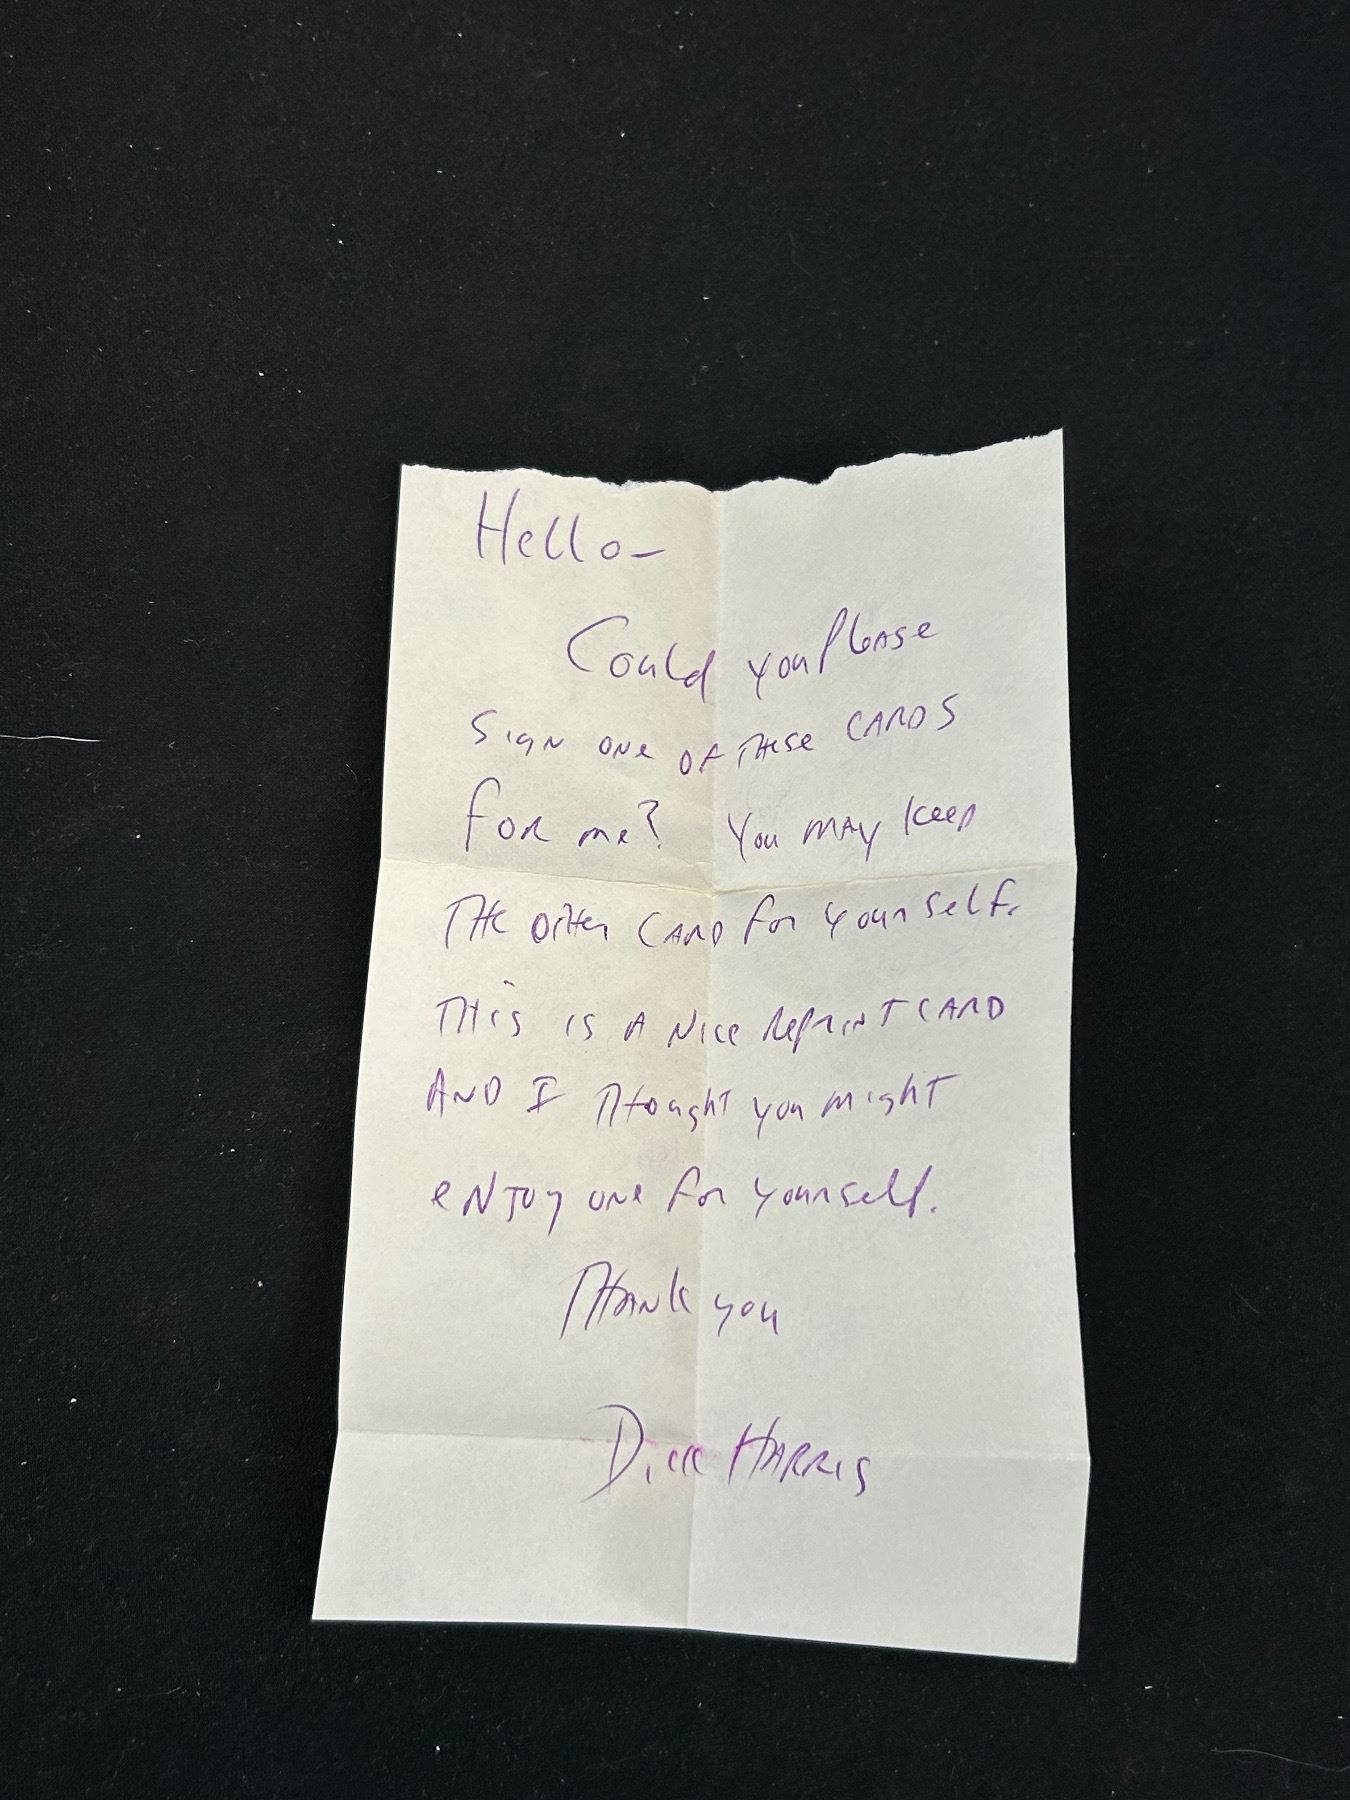 Hello-
Could you Please
Sign one of these cards
for me? You may keep
the other card for yourself.
This is a nice reprint card
and I thought you might
enjoy one for yourself.
Thank you
Dick Harris